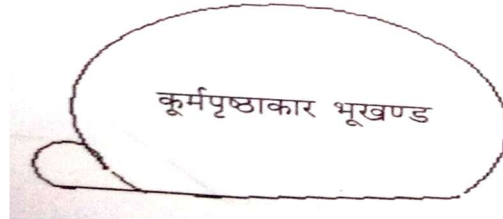 कूर्मपृष्ठाकार भूखण्ड